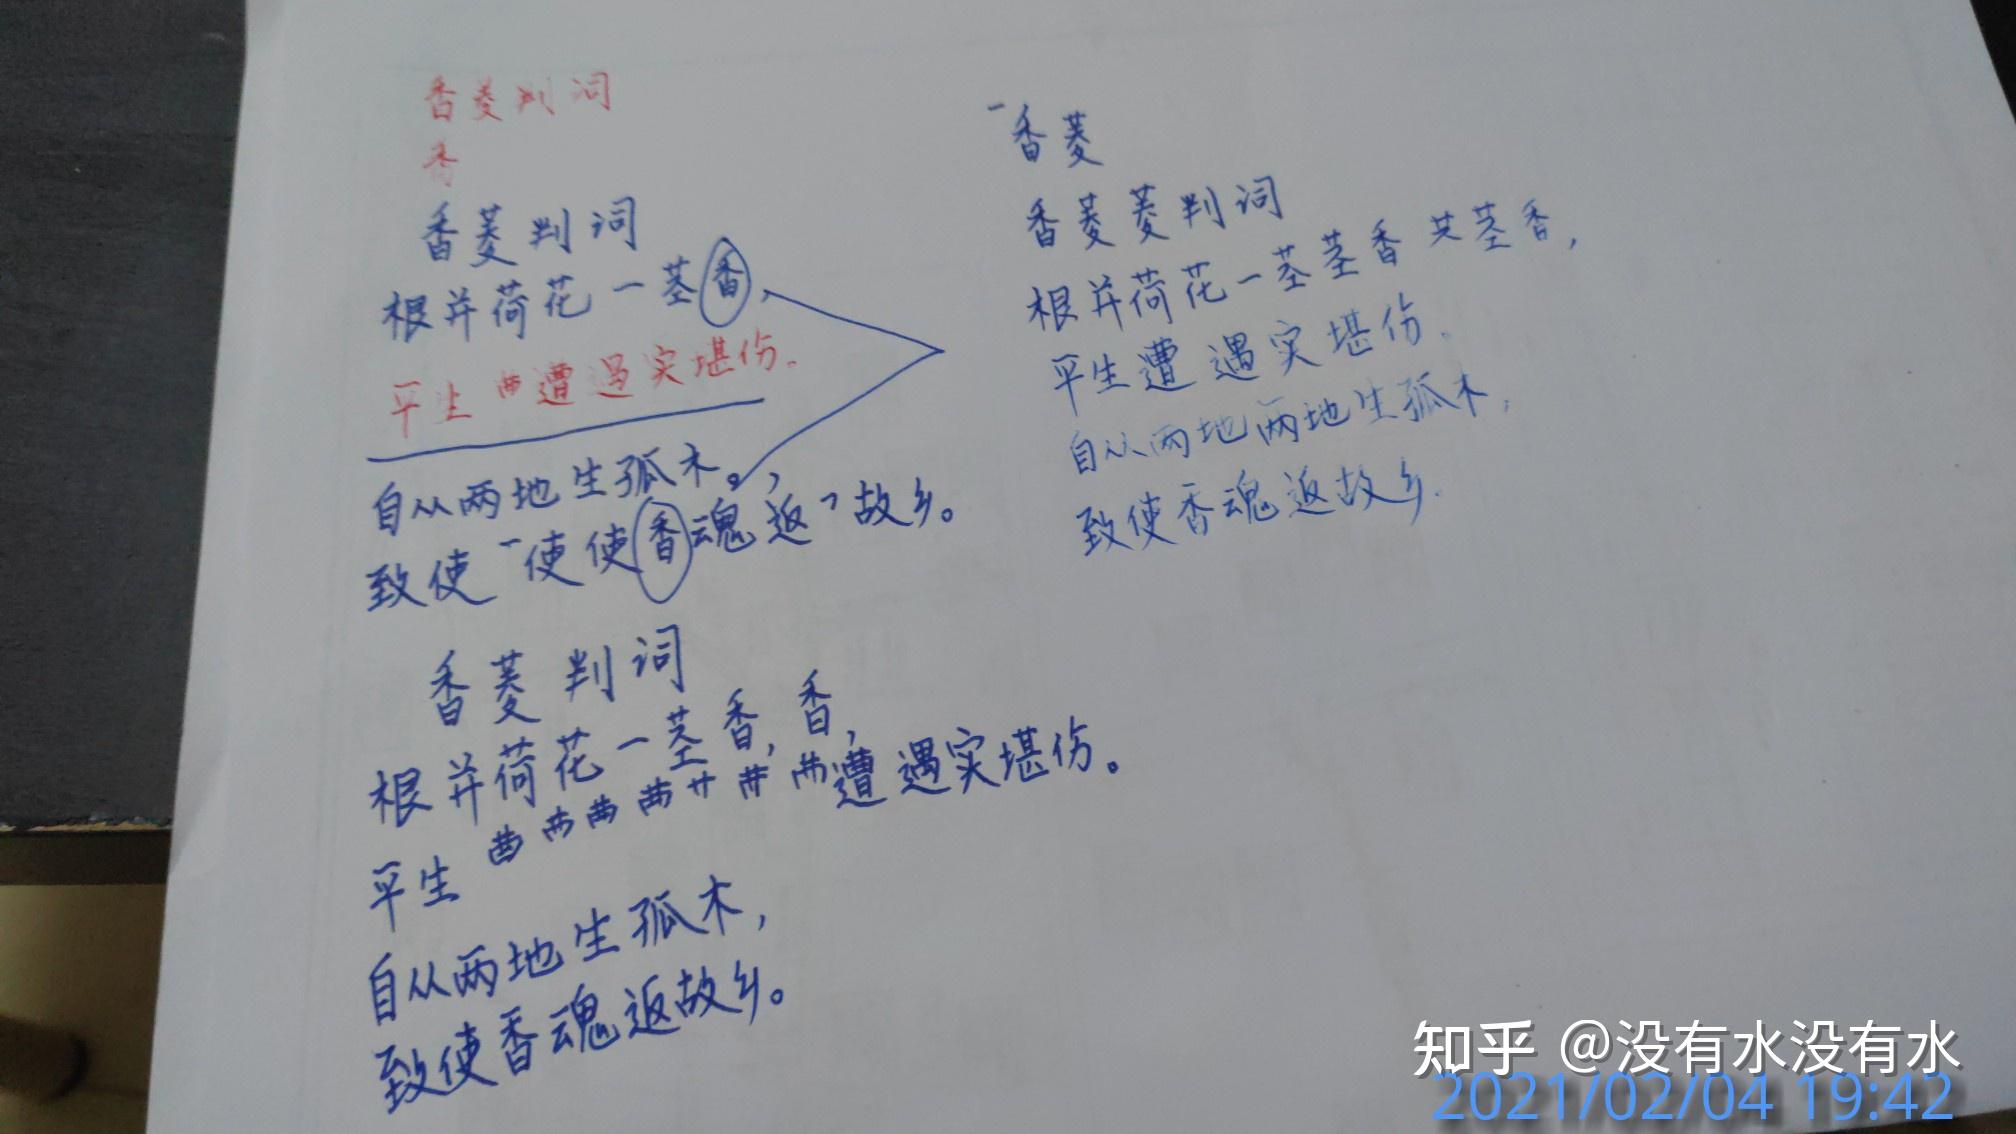 香菱判词
香
香菱判词
根并荷花一茎香,
平生 遭遇实堪伤.
自从两地生孤木。,
致使"使使香魂返"故乡。
香菱判词
根并荷花一茎香,香,
平生 遭遇实堪伤。
自从两地生孤木,
致使香魂返故乡。
香菱
香菱菱判词
根并荷花一茎茎香 共茎香,
平生遭遇实堪伤.
自从两地两地生孤木,
致使香魂返故乡.
知乎 @没有水没有水
2021/02/04 19:42